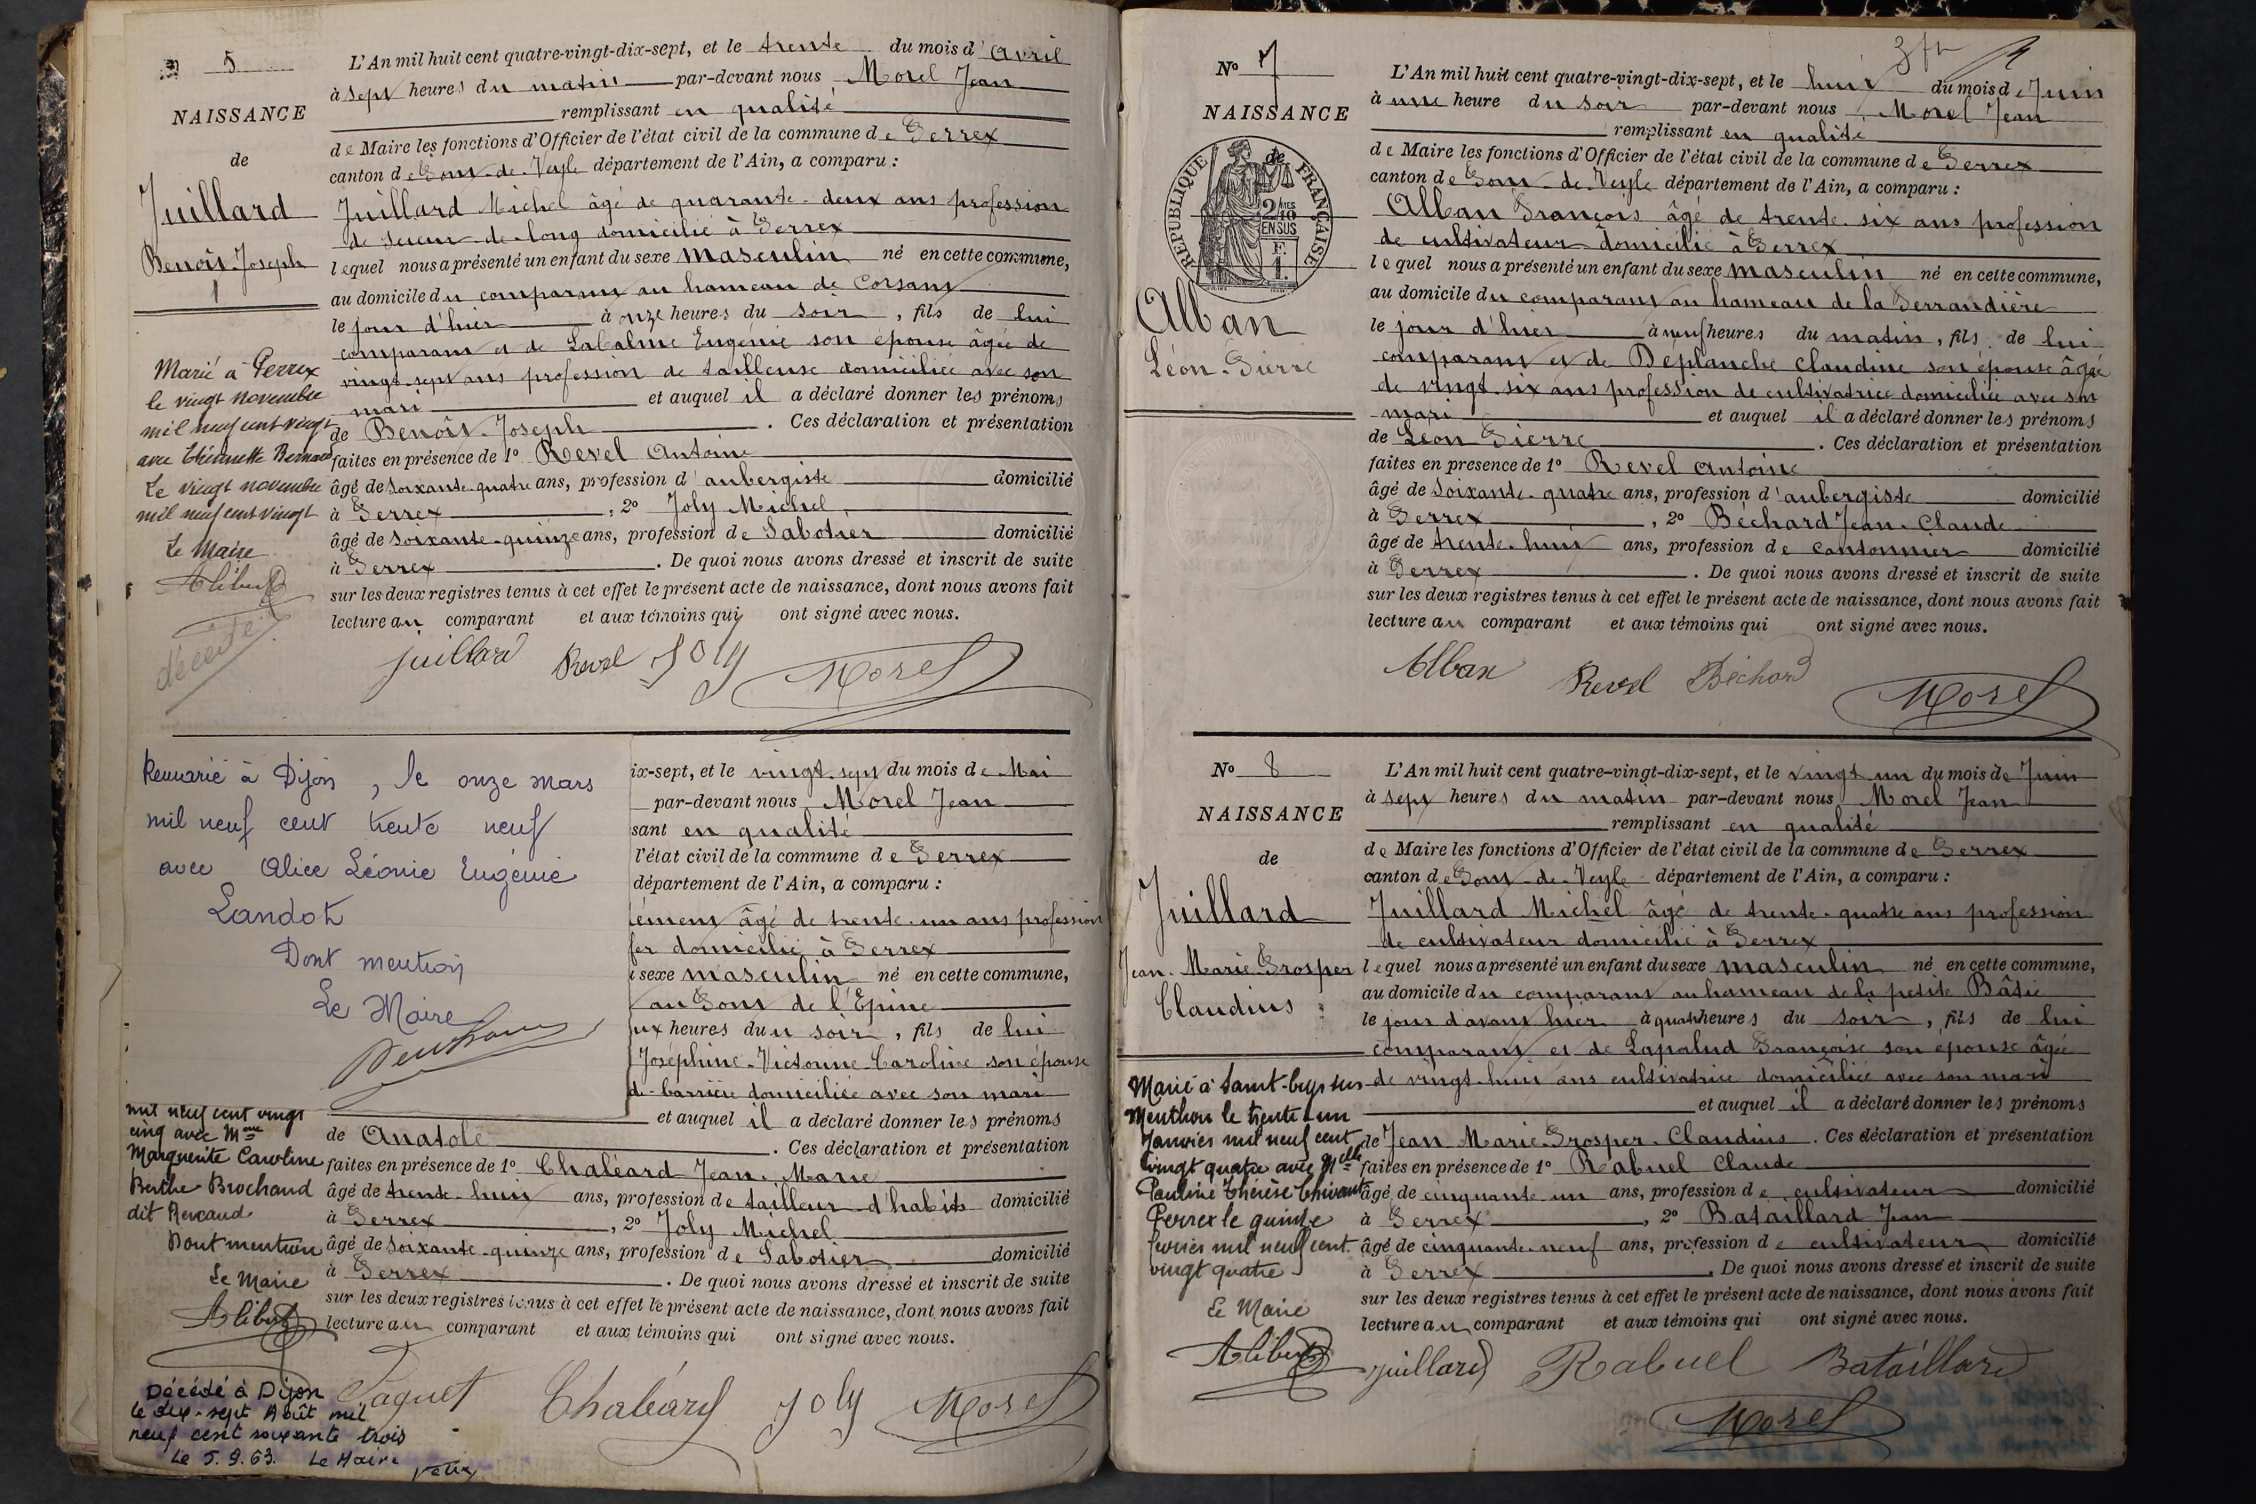 5
NAISSANCE
de
Juillard
Benoît-Joseph
1
Marié à Perrex
le vingt novembre
mil neuf cent vingt
avec Etiennette Bernard
Le vingt novembre
mil neuf cent vingt
Le Maire
Alibert
décédé
L'An mil huit cent quatre-vingt-dix-sept, et le trente du mois d'avril
à sept heures du matin par-devant nous Morel Jean
remplissant en qualité
de Maire les fonctions d'Officier de l'état civil de la commune de Perrex
canton de Pont-de-Veyle département de l'Ain, a comparu :
Juillard Michel âgé de quarante-deux ans profession
de scieur-de-long domicilié à Perrex
lequel nous a présenté un enfant du sexe masculin né en cette commune,
au domicile du comparant au hameau de Corsant
le jour d'hier à onze heures du soir, fils de lui
comparant et de LaBalme Eugénie son épouse âgée de
vingt-sept ans profession de tailleuse domiciliée avec son
mari et auquel il a déclaré donner les prénoms
de Benoît-Joseph. Ces déclaration et présentation
faites en présence de 1° Revel Antoine
âgé de soixante-quatre ans, profession d'aubergiste domicilié
à Perrex, 2° Joly Michel,
âgé de soixante-quinze ans, profession de Sabotier domicilié
à Perrex. De quoi nous avons dressé et inscrit de suite
sur les deux registres tenus à cet effet le présent acte de naissance, dont nous avons fait
lecture au comparant et aux témoins qui ont signé avec nous.
juillard Revel Joly Morel
Remarié à Dijon, le onze mars
mil neuf cent trente neuf
avec Alice Léonie Eugénie
Landot
Dont mention
Le Maire
mil neuf cent vingt
cinq avec Mme
Marguerite Caroline
Berthe Brochand
dit Revcaud
Dont mention
Le Maire
Alibert
Décédé à Dijon
le dix-sept Août mil
neuf cent soixante trois
Le 5.9.63. Le Maire
ix-sept, et le vingt-sept du mois de Mai
par-devant nous Morel Jean
sant en qualité
l'état civil de la commune de Perrex
département de l'Ain, a comparu :
lément âgé de trente-un ans profession
fer domicilié à Perrex
u sexe masculin né en cette commune,
au Pont de l'Epine
ux heures du soir, fils de lui
Joséphine-Victorine Caroline son épouse
de-barrière domiciliée avec son mari
et auquel il a déclaré donner les prénoms
de Anatole. Ces déclaration et présentation
faites en présence de 1° Chaléard Jean-Marie
âgé de trente-huit ans, profession de tailleur d'habits domicilié
à Perrex, 2° Joly Michel
âgé de soixante-quinze ans, profession de Sabotier domicilié
à Perrex. De quoi nous avons dressé et inscrit de suite
sur les deux registres tenus à cet effet le présent acte de naissance, dont nous avons fait
lecture au comparant et aux témoins qui ont signé avec nous.
Paquet Chaléard Joly Morel
N° 7
NAISSANCE
de
RÉPUBLIQUE FRANÇAISE
2/10 EN SUS
F. 1.
Alban
Léon-Pierre
L'An mil huit cent quatre-vingt-dix-sept, et le huit du mois de Juin
à une heure du soir par-devant nous Morel Jean
remplissant en qualité
de Maire les fonctions d'Officier de l'état civil de la commune de Perrex
canton de Pont-de-Veyle département de l'Ain, a comparu :
Alban François âgé de trente-six ans profession
de cultivateur domicilié à Perrex
lequel nous a présenté un enfant du sexe masculin né en cette commune,
au domicile du comparant au hameau de la Ferrandière
le jour d'hier à neuf heures du matin, fils de lui
comparant et de Deplanche Claudine son épouse âgée
de vingt-six ans profession de cultivatrice domiciliée avec son
mari et auquel il a déclaré donner les prénoms
de Léon Pierre. Ces déclaration et présentation
faites en présence de 1° Revel Antoine
âgé de soixante-quatre ans, profession d'aubergiste domicilié
à Perrex, 2° Béchard Jean-Claude
âgé de trente-huit ans, profession de cantonnier domicilié
à Perrex. De quoi nous avons dressé et inscrit de suite
sur les deux registres tenus à cet effet le présent acte de naissance, dont nous avons fait
lecture au comparant et aux témoins qui ont signé avec nous.
Alban Revel Béchard Morel
N° 8
NAISSANCE
de
Juillard
Jean-Marie Prosper
Claudius
Marié à Saint-Cyr sur
Menthon le trente-un
Janvier mil neuf cent
vingt quatre avec Melle
Pauline Thérèse Chivant
Perrex le quinze
février mil neuf cent
vingt quatre
Le Maire
Alibert
L'An mil huit cent quatre-vingt-dix-sept, et le vingt-un du mois de Juin
à sept heures du matin par-devant nous Morel Jean
remplissant en qualité
de Maire les fonctions d'Officier de l'état civil de la commune de Perrex
canton de Pont-de-Veyle département de l'Ain, a comparu :
Juillard Michel âgé de trente-quatre ans profession
de cultivateur domicilié à Perrex
lequel nous a présenté un enfant du sexe masculin né en cette commune,
au domicile du comparant au hameau de la petite Bâtie
le jour d'avant hier à quatre heures du soir, fils de lui
comparant et de Lapalud Françoise son épouse âgée
de vingt-huit ans cultivatrice domiciliée avec son mari
et auquel il a déclaré donner les prénoms
de Jean Marie-Prosper-Claudius. Ces déclaration et présentation
faites en présence de 1° Rabuel Claude
âgé de cinquante-un ans, profession de cultivateur domicilié
à Perrex, 2° Bataillard Jean
âgé de cinquante-neuf ans, profession de cultivateur domicilié
à Perrex. De quoi nous avons dressé et inscrit de suite
sur les deux registres tenus à cet effet le présent acte de naissance, dont nous avons fait
lecture au comparant et aux témoins qui ont signé avec nous.
juillard Rabuel Bataillard
Morel